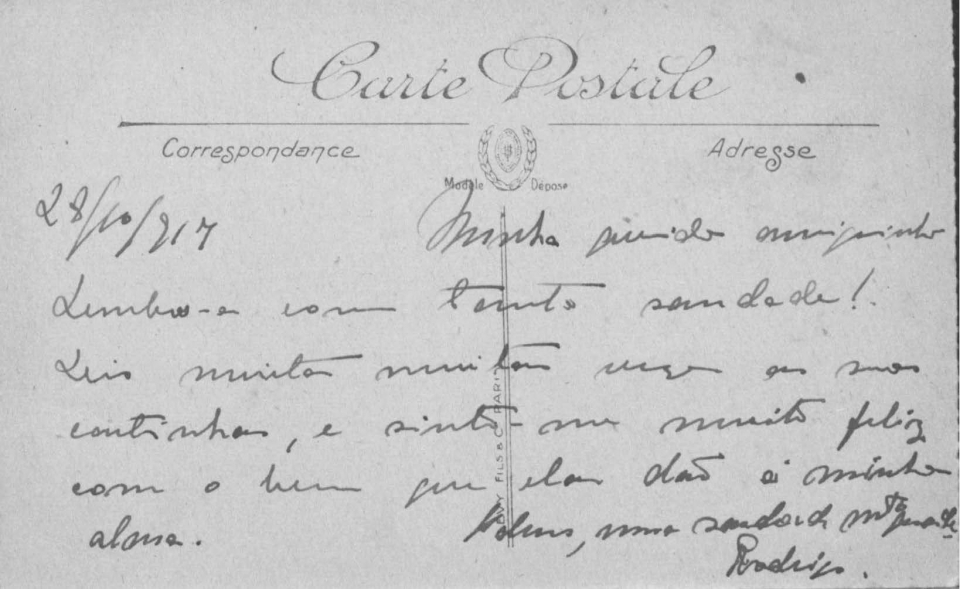 Carte Postale
Correspondance
Adresse
Modèle Déposé
28/10/917
Minha querida amiguinha
Lembro-a com tanta saudade!
Leio muitas muitas vezes as suas
cartinhas, e sinto-me muito feliz
com o bem que elas dão à minha
alma.
Adeus, uma saudade mto grande
Rodrigo.
FILS & C PARIS